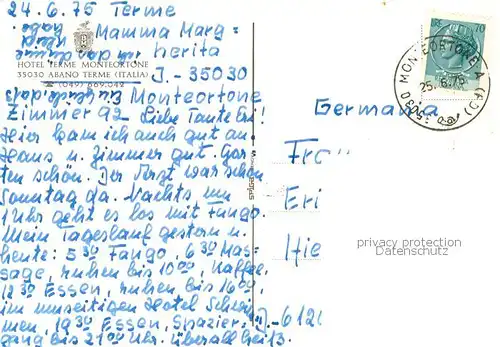 24.6.75 Terme
Mamma Marg=
herita
HOTEL TERME MONTEORTONE
35030 ABANO TERME (ITALIA)
J.-35030
(049) 669.042
Monteortone
Zimmer 92 Liebe Tante Eri!
Hier kam ich auch gut an
Haus u. Zimmer gut. Gar=
ten schön. Der Arzt war schon
Sonntag da. Nachts um
1 Uhr geht es los mit Fango.
Mein Tageslauf gestern u.
heute: 5 30 Fango, 6 30 Mas=
sage, ruhen bis 10 00, Kaffee,
12 30 Essen, ruhen bis 16 00,
im umseitigen Hotel Schwim=
men, 19 30 Essen, Spazier=
gang bis 21 00 Uhr. Überall heiß.
70
35030 MONTEORTONE
25.6.75
(PD)
Germania
Fra
Eri
Hie
D-612
privacy protection
OLDTHING